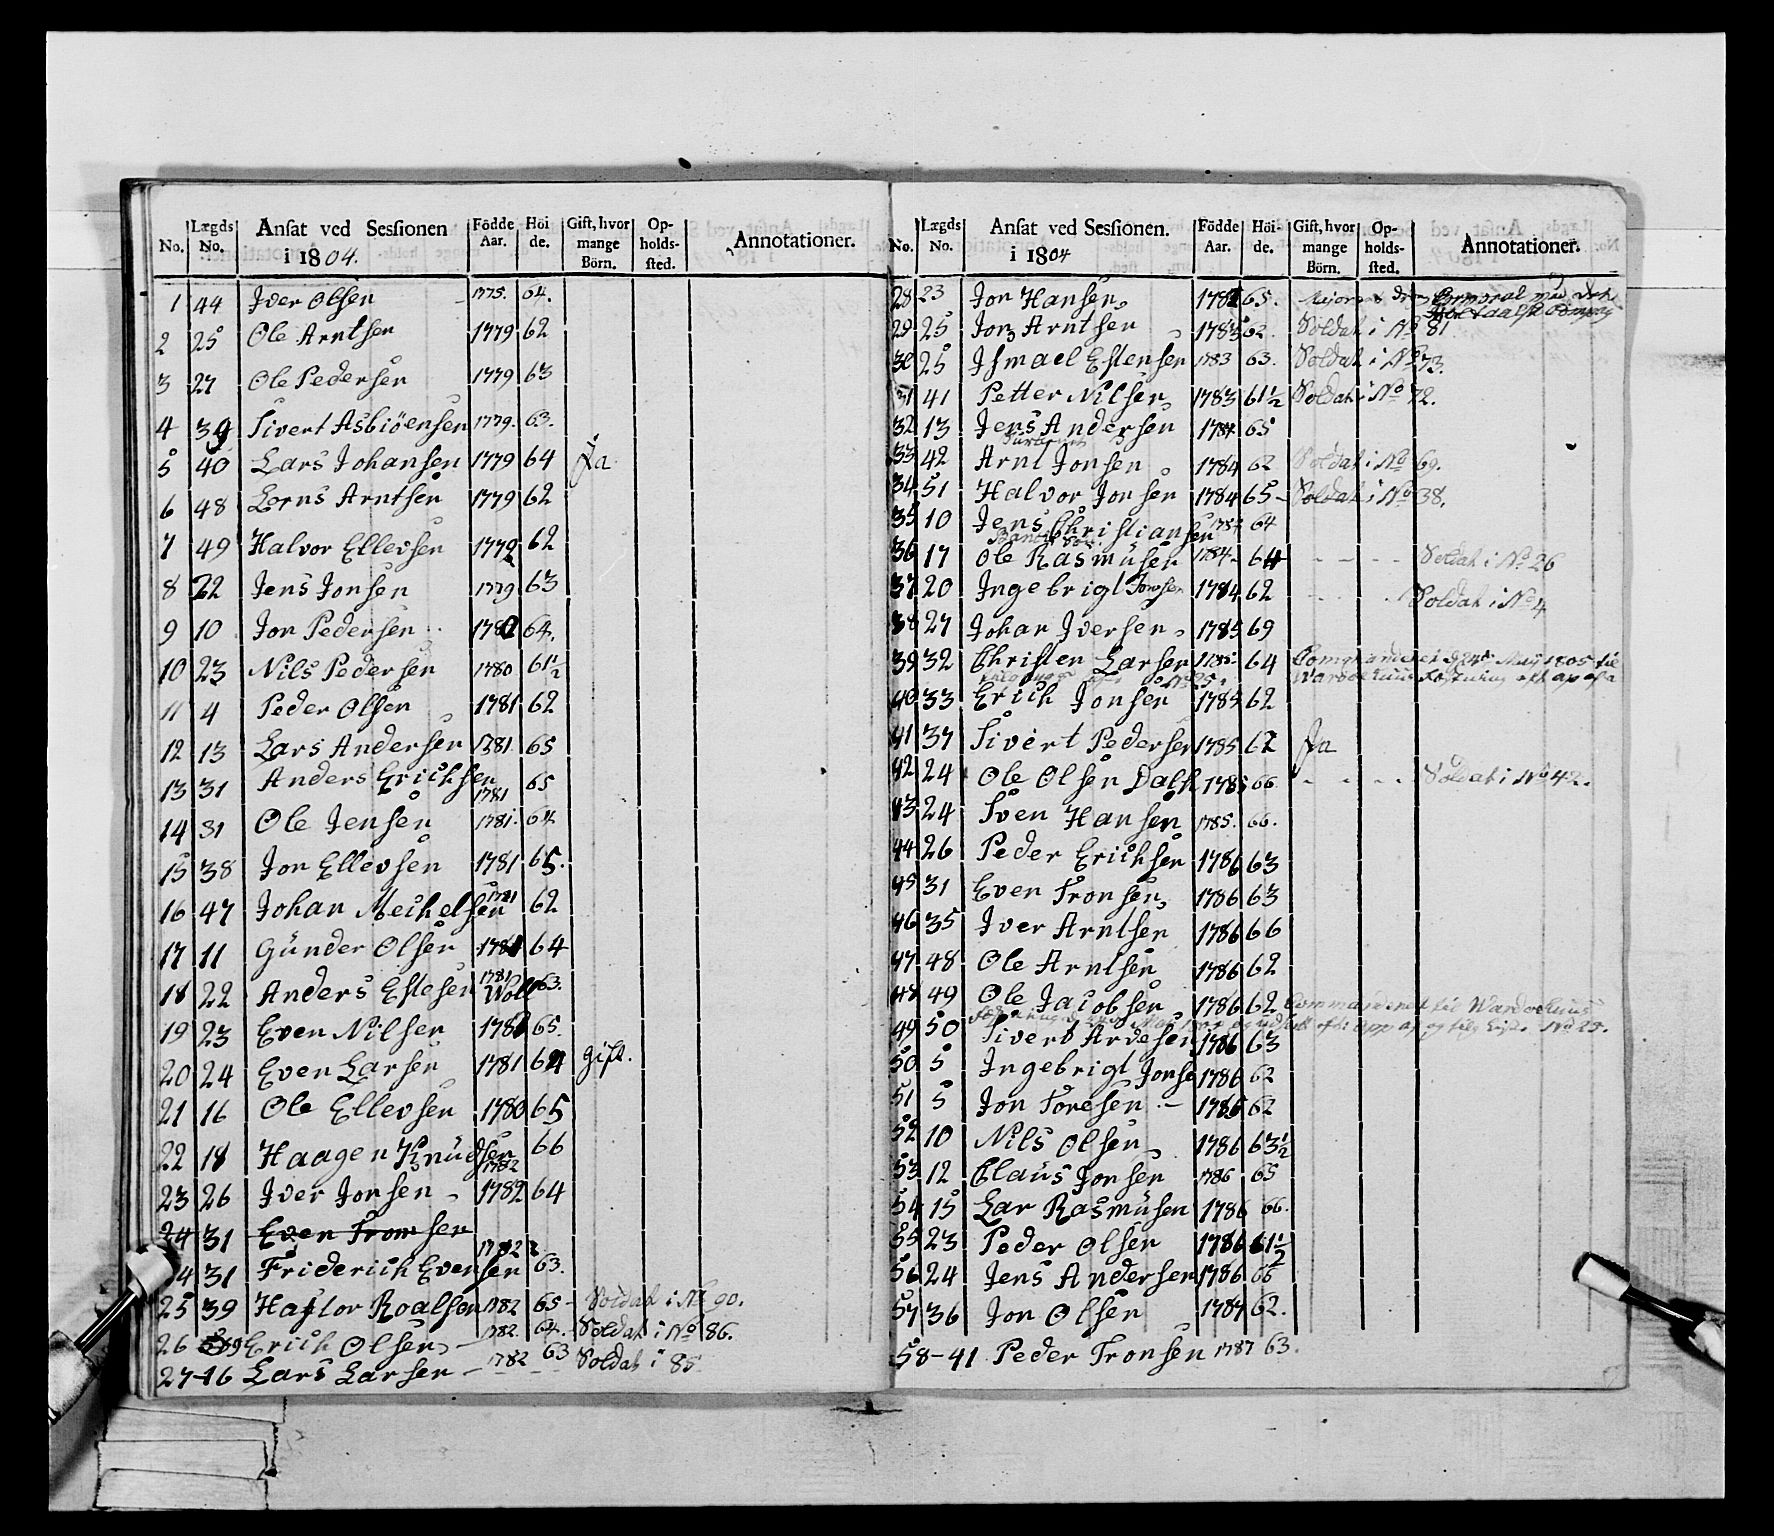 No. Lægds No. Ansat ved Sessionen i 1804. Födde Aar. Höide. Gift, hvor mange Börn. Opholdssted. Annotationer.
1 44 Iver Olsen 1775. 64.
2 25 Ole Arntsen 1779 62
3 27 Ole Pedersen 1779 63
4 39 Sivert Asbiöensen 1779. 63.
5 40 Lars Johansen 1779 64 Ja
6 48 Lorns Arntsen 1779 62
7 49 Halvor Ellevsen 1779 62
8 22 Jens Jonsen 1779 63
9 10 Jon Pedersen 1780 64.
10 23 Nils Pedersen 1780 61½
11 4 Peder Olsen 1781 62
12 13 Lars Andersen 1781 65
13 31 Anders Erichsen 1781 65
14 31 Ole Jensen 1781. 64
15 38 Jon Ellevsen 1781 65.
16 47 Johan Meihelsen 1781 62
17 11 Günder Olsen 1781 64
18 22 Anders Estesen Woll 1781 63.
19 23 Even Nilsen 1781 65.
20 24 Even Larsen 1781 64 gift.
21 16 Ole Ellevsen 1780 65
22 18 Haagen Knüdsen 1782 66
23 26 Iver Jonsen 1782 64
24 31 Even Tronsen
24 31 Friderich Evensen 1782 63.
25 39 Hastor Roalsen 1782 65 - Soldat i No 90.
26 39 Erich Olsen 1782. 64. Soldat i No 86.
27-16 Lars Larsen 1782 63 Soldat i 85
No. Lægds No. Ansat ved Sessionen. i 1804 Födde Aar. Höide. Gift, hvor mange Börn. Opholdssted. Annotationer.
28 23 Jon Hansen 1782 65.
29 25 Jon Arntsen 1783 62 Soldat i No 81
30 25 Ismael Estensen 1783 63. Soldat i No 73.
31 41 Petter Nilsen 1783 61½ Soldat i No 72.
32 13 Jens Andersen 1784 65
33 42 Arnt Jonsen 1784 62 Soldat i No 69.
34 51 Halvor Jonsen 1784 65 - Soldat i No 38.
35 10 Jens Christiansen 1784 64
36 17 Ole Rasmüsen 1784 - 64 - - - - Soldat i No 26
37 20 Ingebrigt Jonsen 1784 62 Soldat i No 4
38 27 Johan Iversen 1785 69
39 32 Christen Larsen 1785. 64 Commanderet d 24de May 1805 til
40 33 Erich Jonsen 1785 62
41 37 Sivert Pedersen 1785 62 Ja
42 24 Ole Olsen Dalh 1785 66 - - - - Soldat i No 42.
43 24 Sven Hansen 1785. 66.
44 26 Peder Erichsen 1786 63
45 31 Even Tronsen 1786 63
46 35 Iver Arntsen 1786 66
47 48 Ole Arntsen 1786 62
48 49 Ole Jacobsen 1786 62 Commanderet til Wardoehuus
49 50 Sivert Arvesen 1786 63
50 5 Ingebrigt Jonsen 1786 62
51 5 Jon Toresen - 1786 62
52 10 Nils Olsen 1786 63½
53 12 Claus Jonsen 1786 65
54 15 Lar Rasmüsen 1786 66.
55 23 Peder Olsen 1786 61½
56 24 Jens Andersen 1786 66
57 36 Jon Olsen 1787 62.
58-41 Peder Tronsen 1787 63.